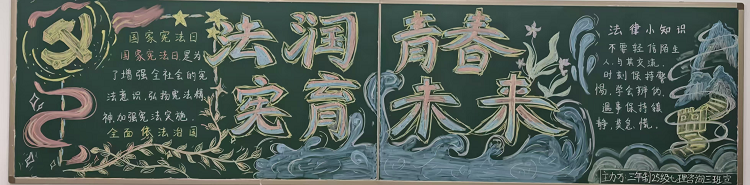 国家宪法日
国家宪法日是为
了增强全社会的宪
法意识,弘扬宪法精
神,加强宪法实施,
全面依法治国
法润青春
实育未来
法律小知识
不要轻信陌生
人,与其交流,
时刻保持警
惕,学会辨的,
遇事保持镇
静,莫急慌。